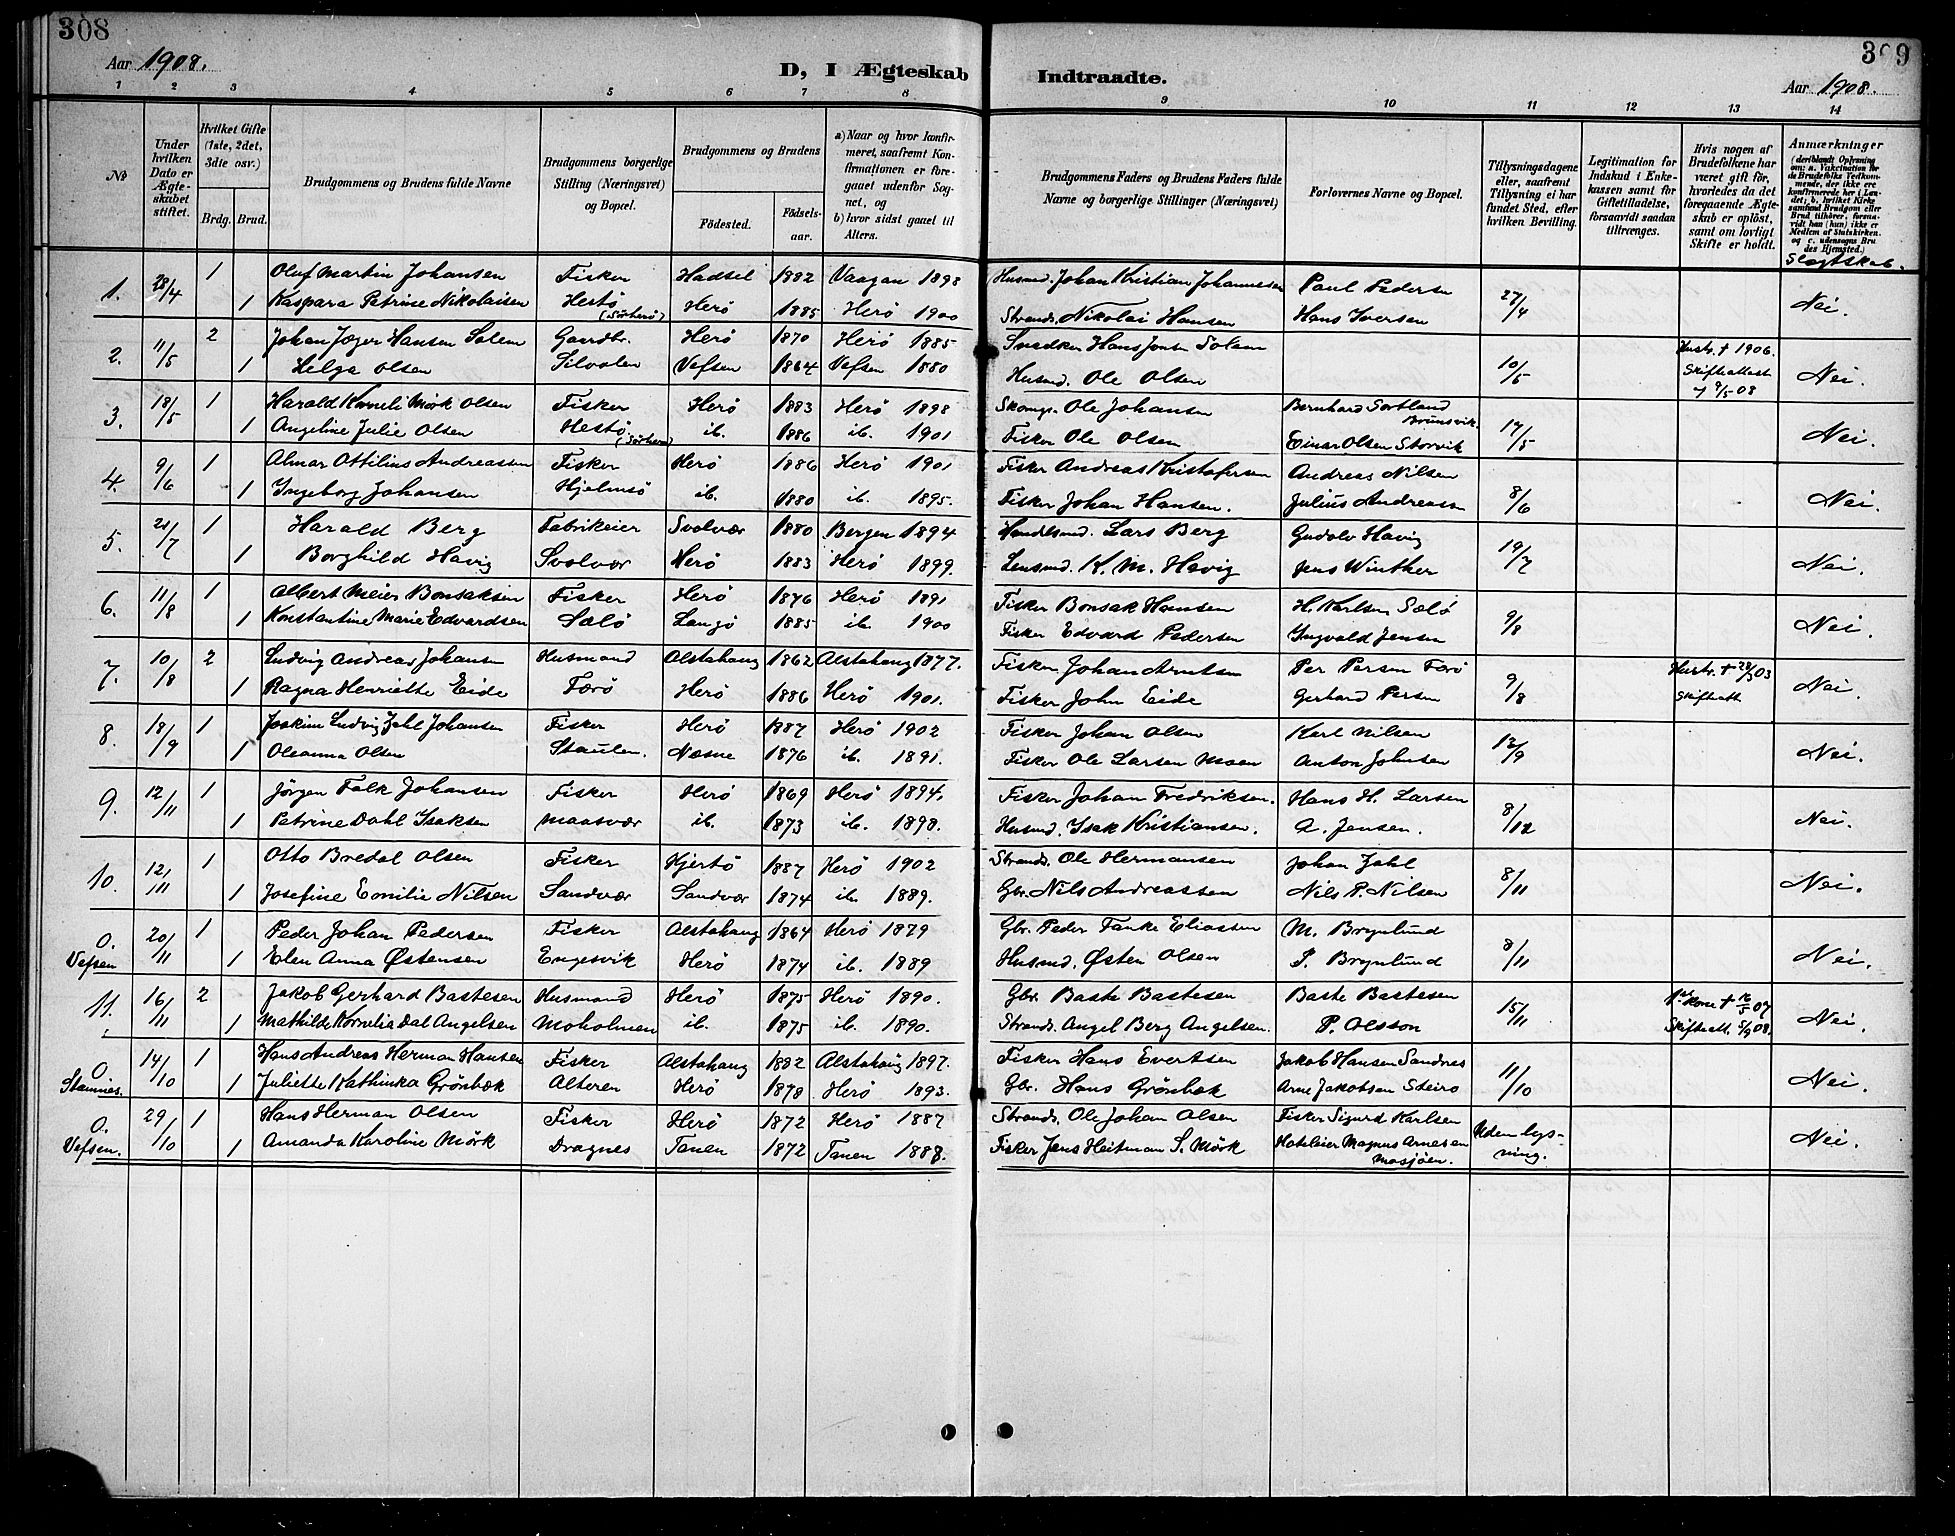 308
Aar 1908.
D, I Ægteskab
1 2 3 4 5 6 7 8
No
Under hvilken Dato er Ægteskabet stiftet.
Hvilket Gifte (1ste, 2det, 3die osv.)
Brdg. Brud.
Brudgommens og Brudens fulde Navne
Brudgommens borgerlige Stilling (Næringsvei) og Bopæl.
Brudgommens og Brudens
Fødested. Fødselsaar.
a) Naar og hvor konfirmeret, saafremt Konfirmationen er foregaaet udenfor Sognet, og
b) hvor sidst gaaet til Alters.
1. 28/4 1 Oluf Martin Johansen Fisker Hadsel 1882 Vaagan 1898
1 Kaspara Petrine Nikolaisen Hestø (Sørherø) Herø 1885 Herø 1900
2. 11/5 2 Johan Jæger Hansen Solem Gaardbr. Herø 1870 Herø 1885
1 Helga Olsen Silvalen Vefsen 1864 Vefsen 1880
3. 18/5 1 Harald Korneli Mørk Olsen Fisker Herø 1883 Herø 1898
1 Angeline Julie Olsen Hestø (Sørherø) ib. 1886 ib. 1901
4. 9/6 1 Almar Ottilius Andreassen Fisker Herø 1886 Herø 1901
1 Ingeborg Johansen Hjelmsø ib. 1880 ib. 1895.
5. 21/7 1 Harald Berg Fabrikeier Svolvær 1880 Bergen 1894
1 Borghild Havig Svolvær Herø 1883 Herø 1899.
6. 11/8 1 Albert Meier Bonsaksen Fisker Herø 1876 Herø 1891
1 Konstantine Marie Edvardsen Sælø Langø 1885 ib. 1900
7. 10/8 2 Ludvig Andreas Johansen Husmand Alstahaug 1862 Alstahaug 1877.
1 Ragna Henriette Eide Færø Herø 1886 Herø 1901.
8. 18/9 1 Joakim Ludvig Zahl Johansen Fisker Herø 1887 Herø 1902
1 Oleanna Olsen Staulen. Næsne 1876 ib. 1891.
9. 12/11 1 Jørgen Falk Johansen Fisker Herø 1869 Herø 1894.
1 Petrine Dahl Isaksen Maasvær ib. 1873 ib. 1898.
10. 12/11 1 Otto Bredal Olsen Fisker Hjertø 1887 Herø 1902
1 Josefine Emilie Nilsen Sandvær Sandvær 1874 ib. 1889.
O. Vefsen 20/11 1 Peder Johan Pedersen Fisker Alstahaug 1864 Herø 1879
1 Elen Anna Østensen Engesvik Herø 1874 ib. 1889
11. 16/11 2 Jakob Gerhard Bastesen Husmand Herø 1875 Herø 1890.
1 Mathilde Kornelia Dal Angelsen Moholmen ib. 1875 ib. 1890.
O. Stamnes. 14/10 1 Hans Andreas Herman Hansen Fisker Alstahaug 1882 Alstahaug 1897.
1 Juliette Kathinka Grønbæk Alteren Herø 1878 Herø 1893.
O. Vefsen. 29/10 1 Hans Herman Olsen Fisker Herø 1872 Herø 1887
1 Amanda Karoline Mørk Dragnes Tanen 1872 Tanen 1888.
309
Indtraadte.
Aar 1908.
9 10 11 12 13 14
Brudgommens Faders og Brudens Faders fulde Navne og borgerlige Stillinger (Næringsvei)
Forlovernes Navne og Bopæl.
Tillysningsdagene eller, saafremt Tillysning ei har fundet Sted, efter hvilken Bevilling.
Legitimation for Indskud i Enkekassen samt for Giftetilladelse, forsaavidt saadan tiltrænges.
Hvis nogen af Brudefolkene har været gift før, hvorledes da det foregaaende Ægteskab er opløst, samt om lovligt Skifte er holdt.
Anmærkninger
(deriblandt Oplysning om: a. Vakcination for de Brudefolks Vedkommende, der ikke ere konfirmerede her i Landet; b. hvilket Kirkesamfund Brudgom eller Brud tilhører, forsaavidt han (hun) ikke er Medlem af Statskirken. og c. udensogns Brudes Hjemsted.)
Slægtskab.
Husmd. Johan Kristian Johannessen Paul Pedersen 27/4 Nei.
Strands. Nikolai Hansen Hans Iversen
Snedker Hans Jonsen Solem 10/5 Hustr. † 1906. Skifteattest 9/5-08 Nei.
Husmd. Ole Olsen
Skomgr. Ole Johansen Bernhard Sortland Brunsvik 17/5 Nei.
Fisker Ole Olsen Einar Olsen Storvik
Fisker Andreas Kristofersen Andreas Nilsen 8/6 Nei.
Fisker Johan Hansen. Julius Andreassen
Handlesmd. Lars Berg Gudolv Havig 19/7 Nei.
Lensmd. K. M. Havig Jens Winther
Fisker Bonsak Hansen H. Karlsen Sælø 9/8 Nei.
Fisker Edvard Pedersen Ingvald Jensen
Fisker Johan Arntsen Per Persen Færø 9/8 Hustr. † 28/3 03 Skifteatt. Nei.
Fisker John Eide Gerhard Persen
Fisker Johan Olsen Karl Nilsen 13/9 Nei.
Fisker Ole Larsen Moen Anton Johnsen
Fisker Johan Fredriksen. Hans H. Larsen 8/12 Nei.
Husmd. Isak Kristiansen. A. Jensen.
Strands. Ole Hermansen Johan Zahl 8/11 Nei.
Gbr. Nils Andreassen Nils P. Nilsen
Gbr. Peder Tanke Eliassen M. Brynlund 8/11 Nei.
Husmd. Østen Olsen P. Brynlund
Gbr. Baste Bastesen Baste Bastesen 15/11 1ste Kone † 16/5 07 Skifteatt. 5/9 08. Nei.
Strands. Angel Berg Angelsen. P. Olsson
Fisker Hans Evertsen Jakob Hansen Sandnes 11/10 Nei.
Gbr. Hans Grønbæk Arne Jakobsen Steiro
Strands. Ole Johan Olsen Fisker Sigurd Karlsen Uden lysning. Nei.
Fisker Jens Heitman S. Mørk Hoteleier Magnus Arnesen Mosjøen.